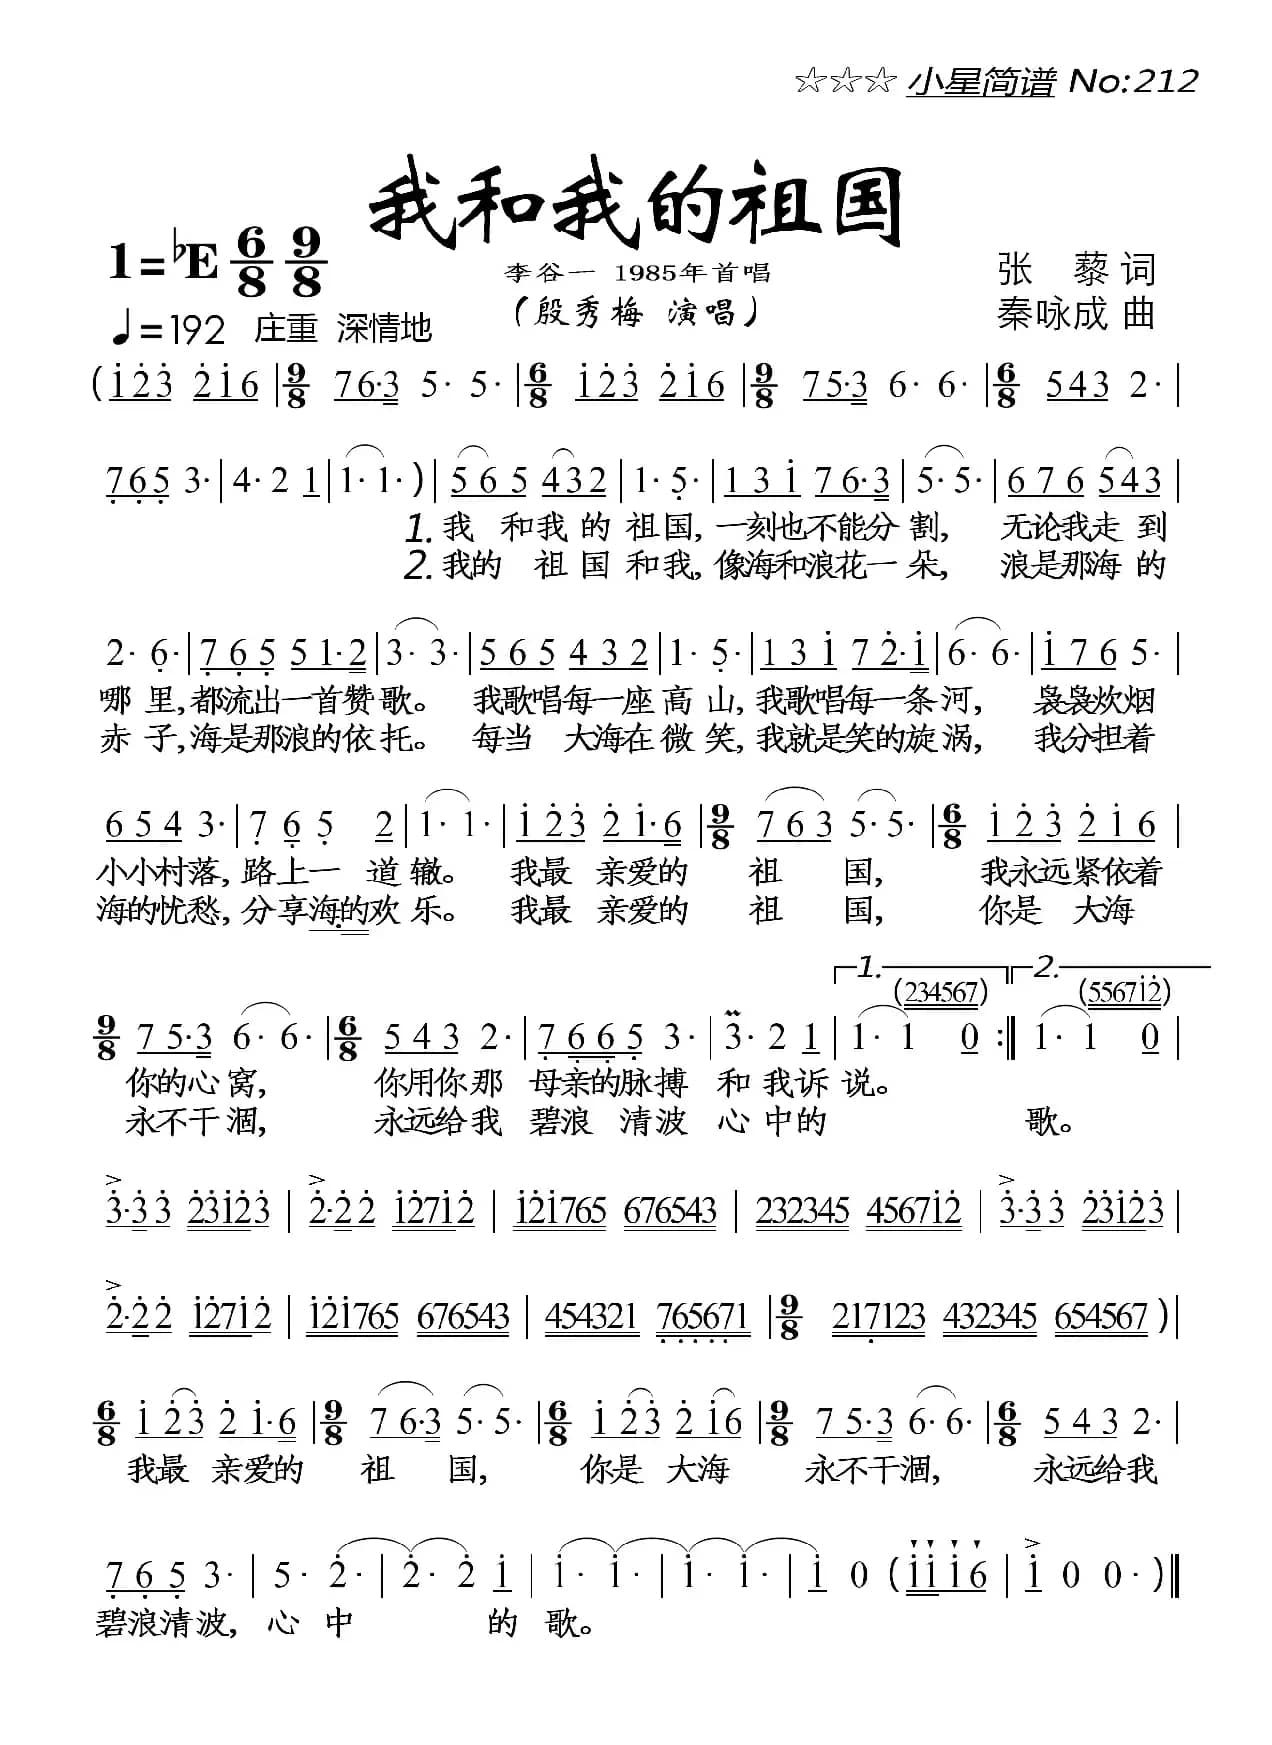 ☆☆☆ 小星简谱 No:212
我和我的祖国
1=♭E 6/8 9/8
李谷一 1985年首唱
张 藜 词
♩=192 庄重 深情地
（殷秀梅 演唱）
秦咏成 曲
(1̇2̇3̇ 2̇1̇6 | 9/8 76·3 5· 5· | 6/8 1̇2̇3̇ 2̇1̇6 | 9/8 75·3 6· 6· | 6/8 543 2· |
7̣6̣5̣ 3· | 4· 2 1 | 1· 1· ) | 565 432 | 1· 5̣· | 131̇ 76·3 | 5· 5· | 676 543 |
1. 我 和我 的 祖国, 一刻也不能分 割, 无论我走 到
2. 我的 祖 国 和我, 像海和浪花一 朵, 浪是那海 的
2· 6̣· | 7̣6̣5̣ 51·2 | 3· 3· | 565 432 | 1· 5̣· | 131̇ 72̇·1̇ | 6· 6· | 1̇76 5· |
哪 里, 都流出一首赞 歌。 我歌唱每一座 高 山, 我歌唱每一条 河, 袅袅炊烟
赤 子, 海是那浪的依 托。 每当 大海在 微 笑, 我就是笑的旋 涡, 我分担着
654 3· | 7̣ 6̣ 5̣ 2 | 1· 1· | 1̇2̇3̇ 2̇1̇·6 | 9/8 763 5· 5· | 6/8 1̇2̇3̇ 2̇1̇6 |
小小村落, 路上一 道 辙。 我最 亲爱的 祖 国, 我永远紧依着
海的忧愁, 分享海的欢 乐。 我最 亲爱的 祖 国, 你是 大海
1. (234567) 2. (55671̇2̇)
9/8 75·3 6· 6· | 6/8 543 2· | 7̣6̣6̣5̣ 3· | 3· 2 1 | 1· 1 0 :‖ 1· 1 0 |
你的心 窝, 你用你那 母亲的脉搏 和 我诉 说。
永不干 涸, 永远给我 碧浪 清波 心 中的 歌。
3̇·3̇3̇ 2̇3̇1̇2̇3̇ | 2̇·2̇2̇ 1̇2̇71̇2̇ | 1̇2̇1̇765 676543 | 232345 45671̇2̇ | 3̇·3̇3̇ 2̇3̇1̇2̇3̇ |
2̇·2̇2̇ 1̇2̇71̇2̇ | 1̇2̇1̇765 676543 | 454321 7̣6̣5̣6̣7̣1 | 9/8 217̣123 432345 654567 ) |
6/8 1̇2̇3̇ 2̇1̇·6 | 9/8 76·3 5· 5· | 6/8 1̇2̇3̇ 2̇1̇6 | 9/8 75·3 6· 6· | 6/8 543 2· |
我最 亲爱的 祖 国, 你是 大海 永不干涸, 永远给我
7̣6̣5̣ 3· | 5· 2̇· | 2̇· 2̇· 1̇ | 1̇· 1̇· | 1̇· 1̇· | 1̇ 0 (1̇1̇1̇6 | 1̇ 0 0· )‖
碧浪清波, 心 中 的 歌。